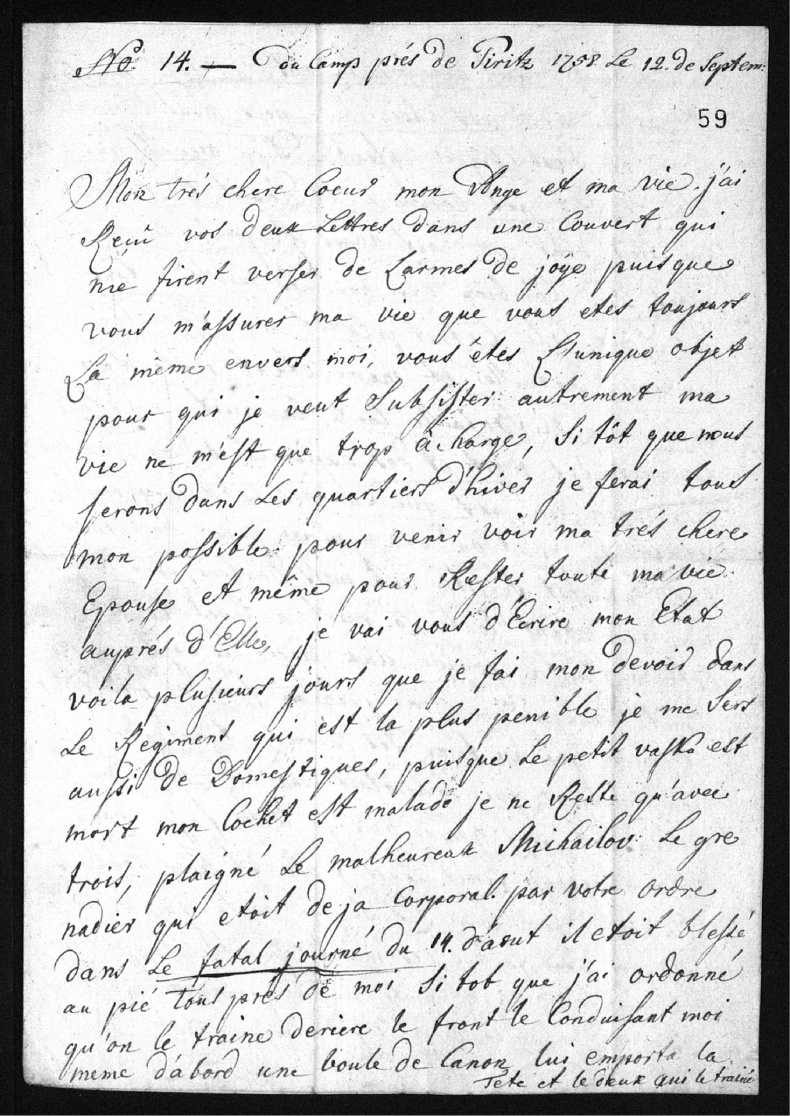 No. 14. — Du Camp prés de Piritz 1758 Le 12. de Septem:
59
Mon trés chere Coeur mon Ange et ma vie j'ai
Reçû vos deux Lettres dans une Couvert qui
me firent verser de Larmes de joÿe puisque
vous m'assurer ma vie que vous etes toujours
La même envers moi, vous étes L'unique objet
pour qui je veut Subsister autrement ma
vie ne m'est que trop à charge, Si tôt que nous
serons dans Les quartiers d'hiver je ferai tous
mon possible pour venir voir ma trés chere
Epouse et même pour Rester toute ma vie
auprés d'Elle, je vai vous d'Ecrire mon Etat
voila plusieurs jours que je fai mon devoir dans
Le Regiment qui est la plus penible je me Sers
aussi de Domestiques, puisque Le petit vaska est
mort mon Cochet est malade je ne Reste qu'avec
trois, plaigné Le malheureux Michailov Le gre
nadier qui etoit deja Corporal par votre ordre
dans Le fatal journé du 14. d'aout il etoit blessé
au pié tous pres de moi Si tot que j'ai ordonné
qu'on le traine deriere le front le Conduisant moi
meme d'abord une boule de Canon lui emporta la
Tete et le deux qui le trainé